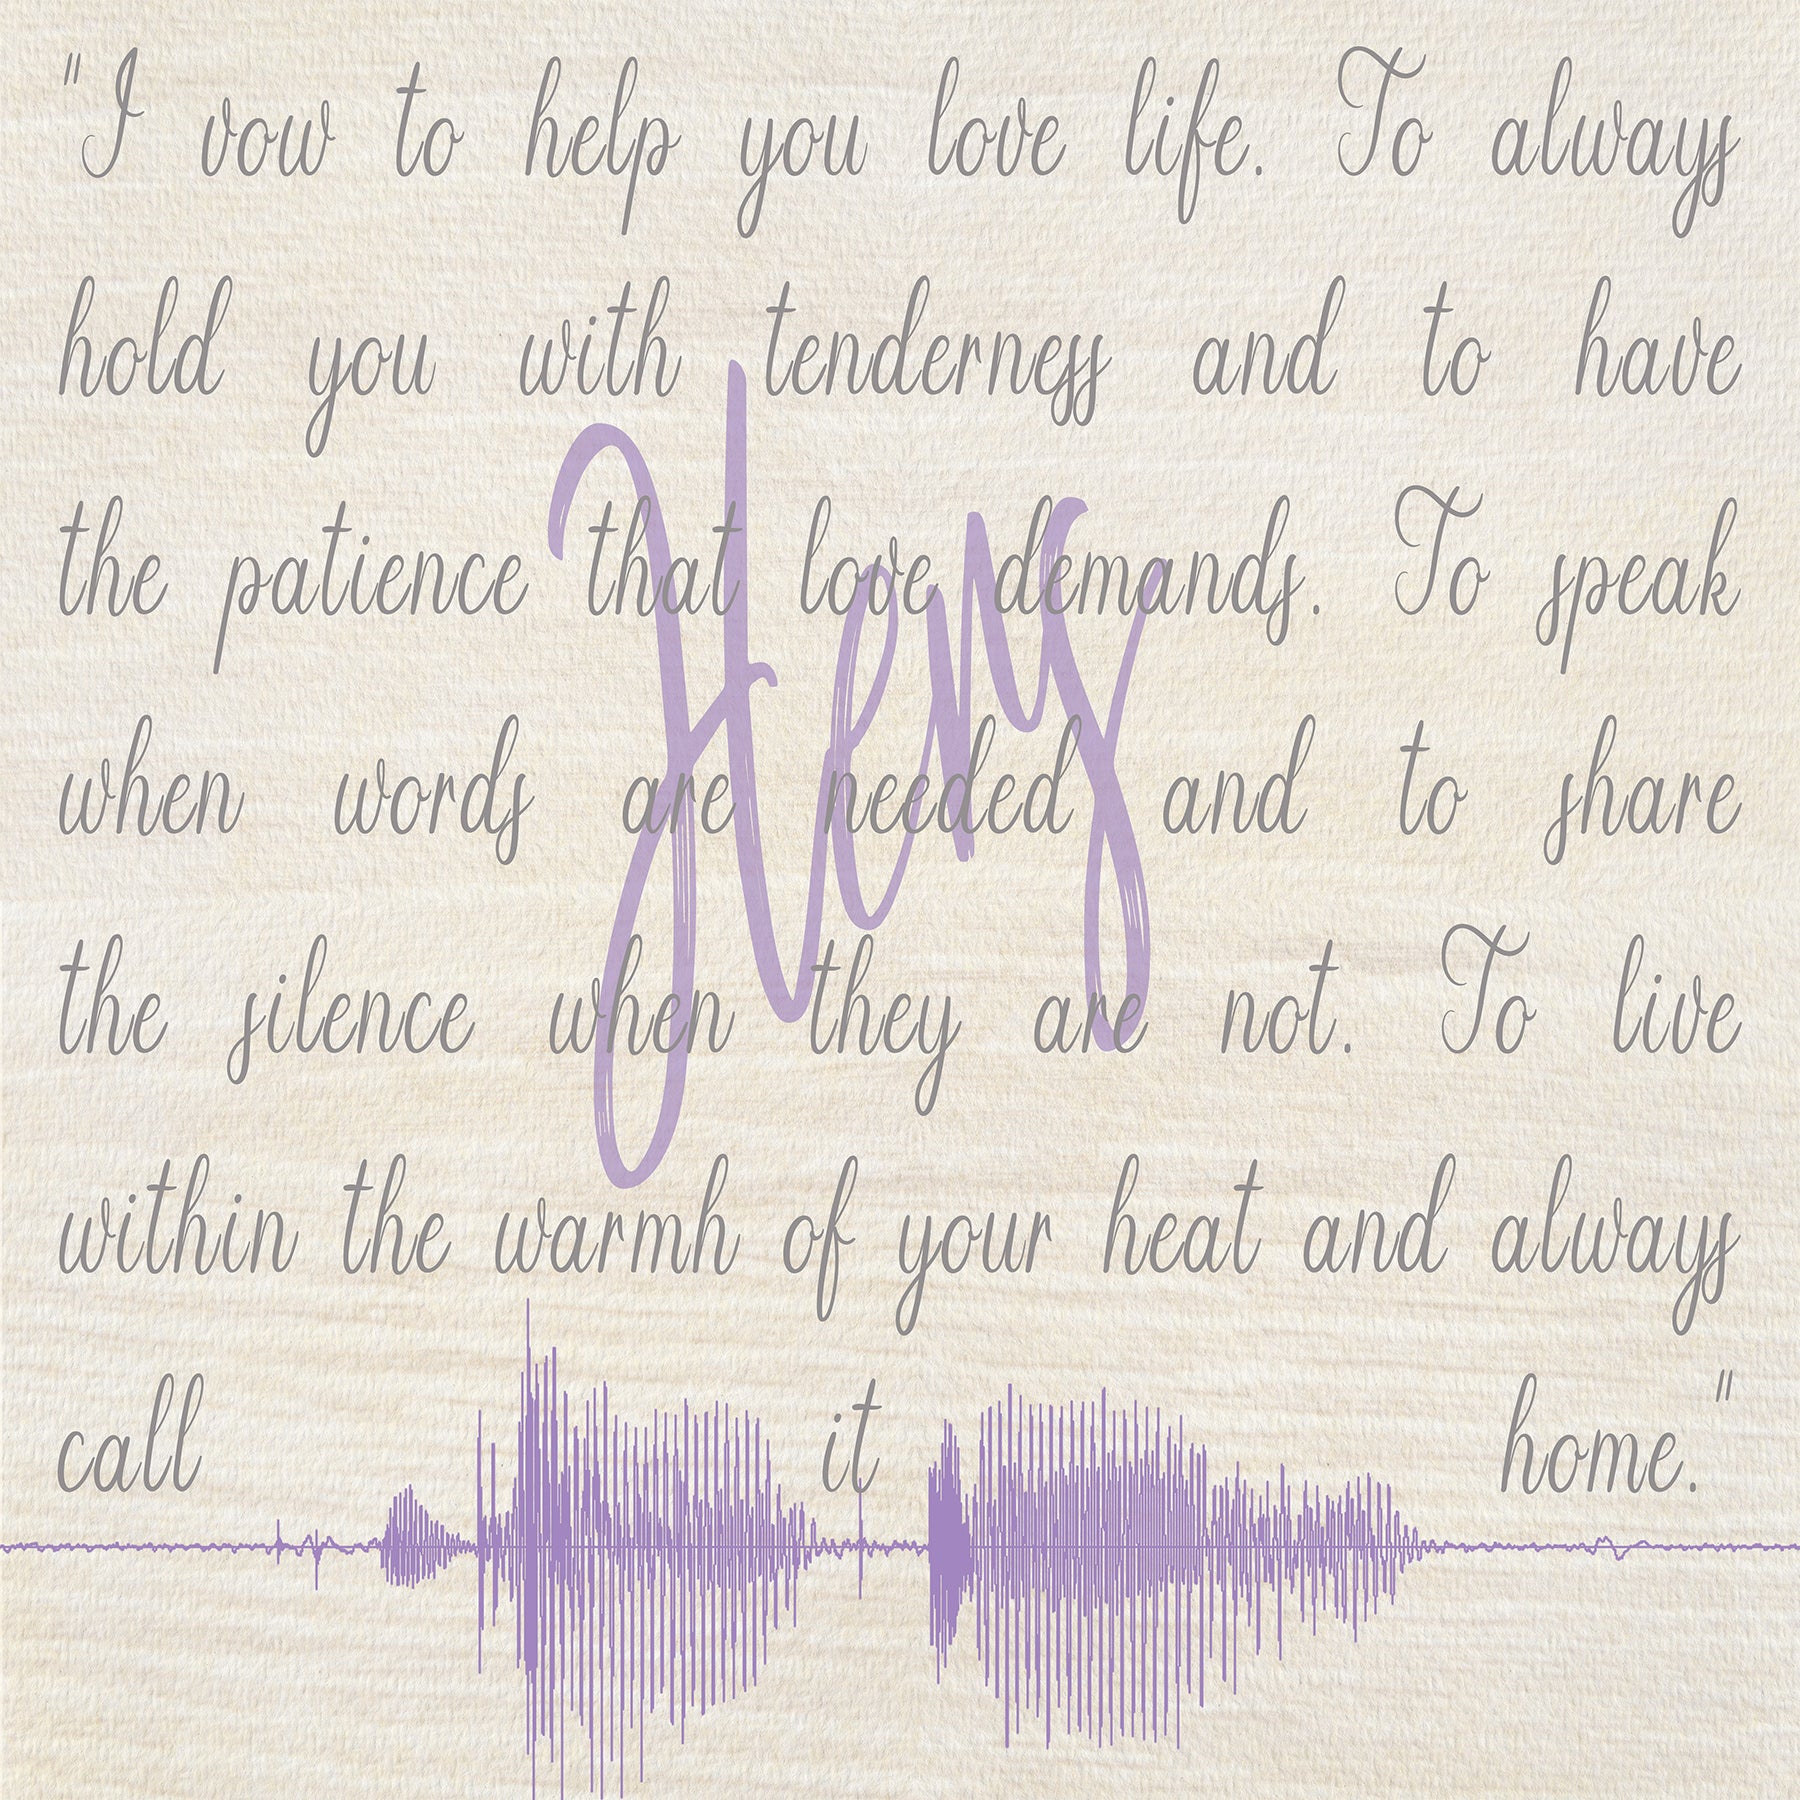 "I vow to help you love life. To always
hold you with tenderness and to have
the patience that love demands. To speak
when words are needed and to share
the silence when they are not. To live
within the warmh of your heat and always
call it home."
Hens